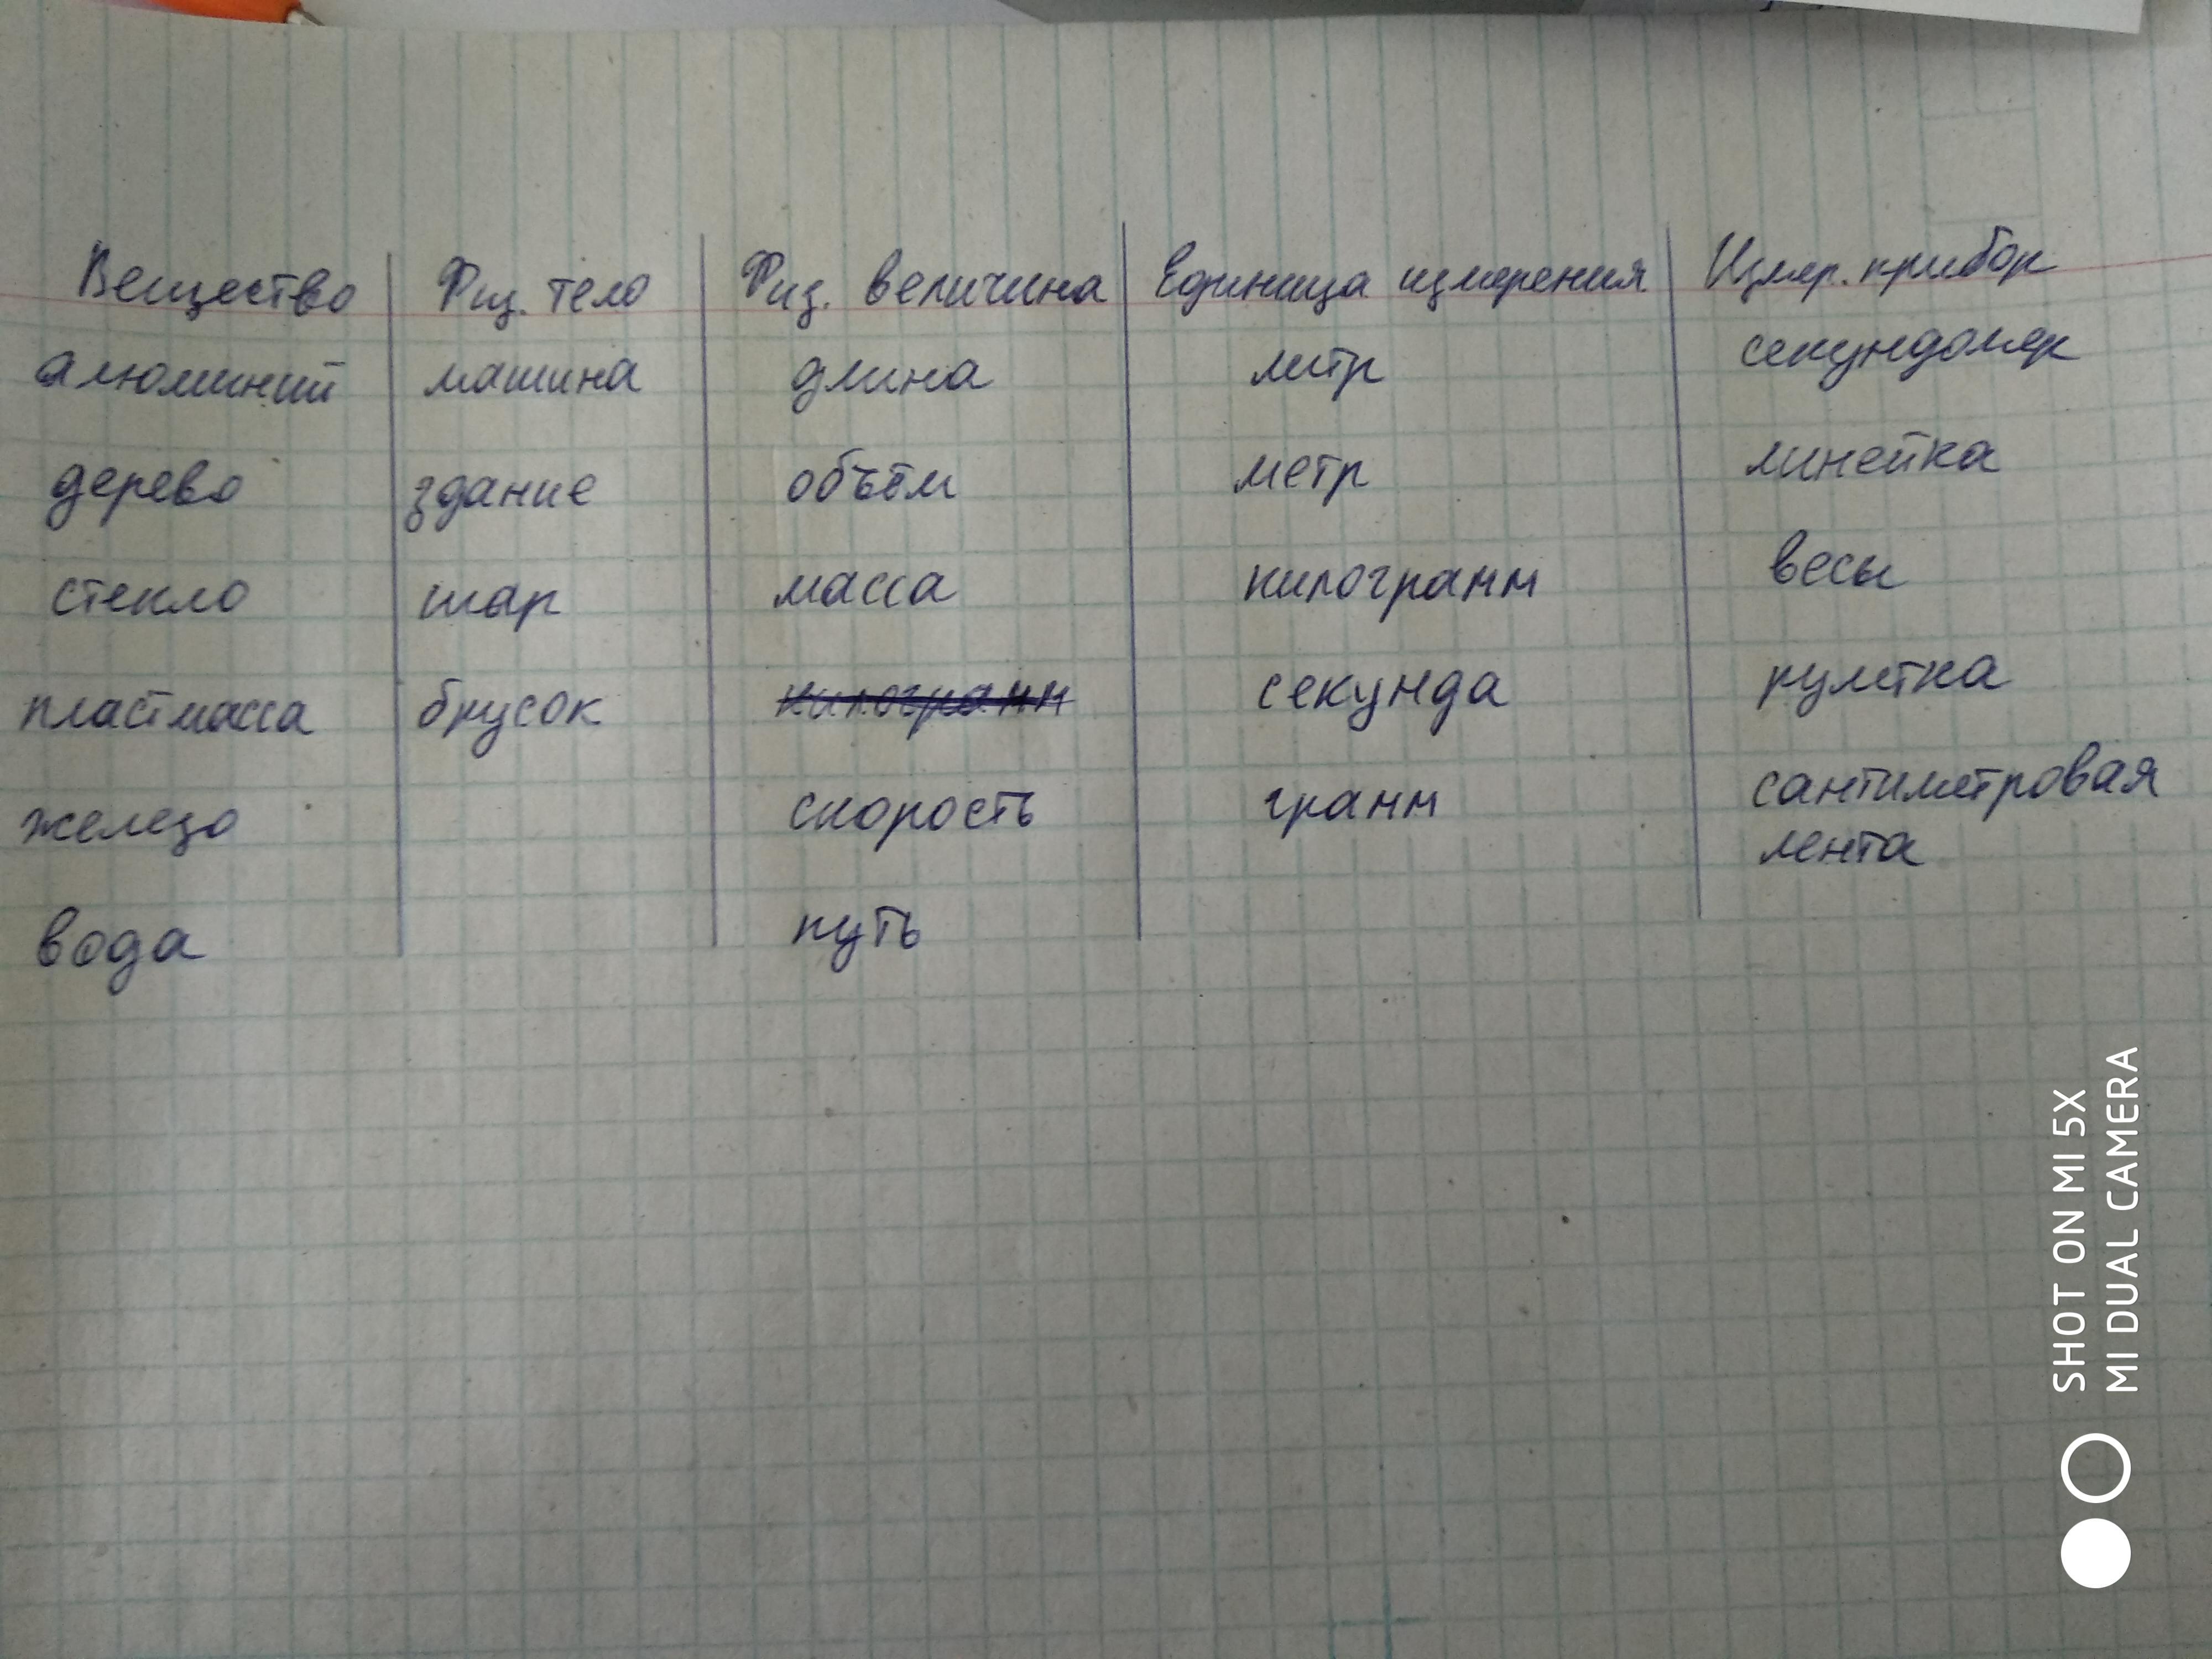 Вещество Физ. тело Физ. величина Единица измерения Измер. прибор
алюминий машина длина литр секундомер
дерево здание объём метр линейка
стекло шар масса килограмм весы
пластмасса брусок килограмм секунда рулетка
железо скорость грамм сантиметровая
лента
вода путь
SHOT ON MI 5X
MI DUAL CAMERA